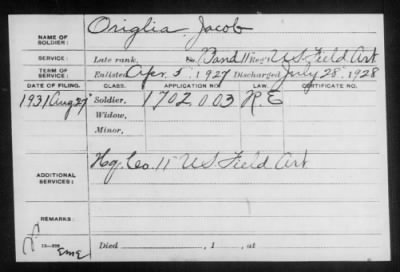 NAME OF SOLDIER: Origlia, Jacob
SERVICE: Late rank, Co. Band 11 Reg't U.S. Field Art
TERM OF SERVICE: Enlisted Apr. 5, 1927 Discharged July 28, 1928
DATE OF FILING. CLASS. APPLICATION NO. LAW. CERTIFICATE NO.
1931 Aug 27 Soldier, 1702003 R.E
Widow,
Minor,
ADDITIONAL SERVICES: Hq. Co. 11 U.S. Field Art
REMARKS:
Died , 1 , at
EME